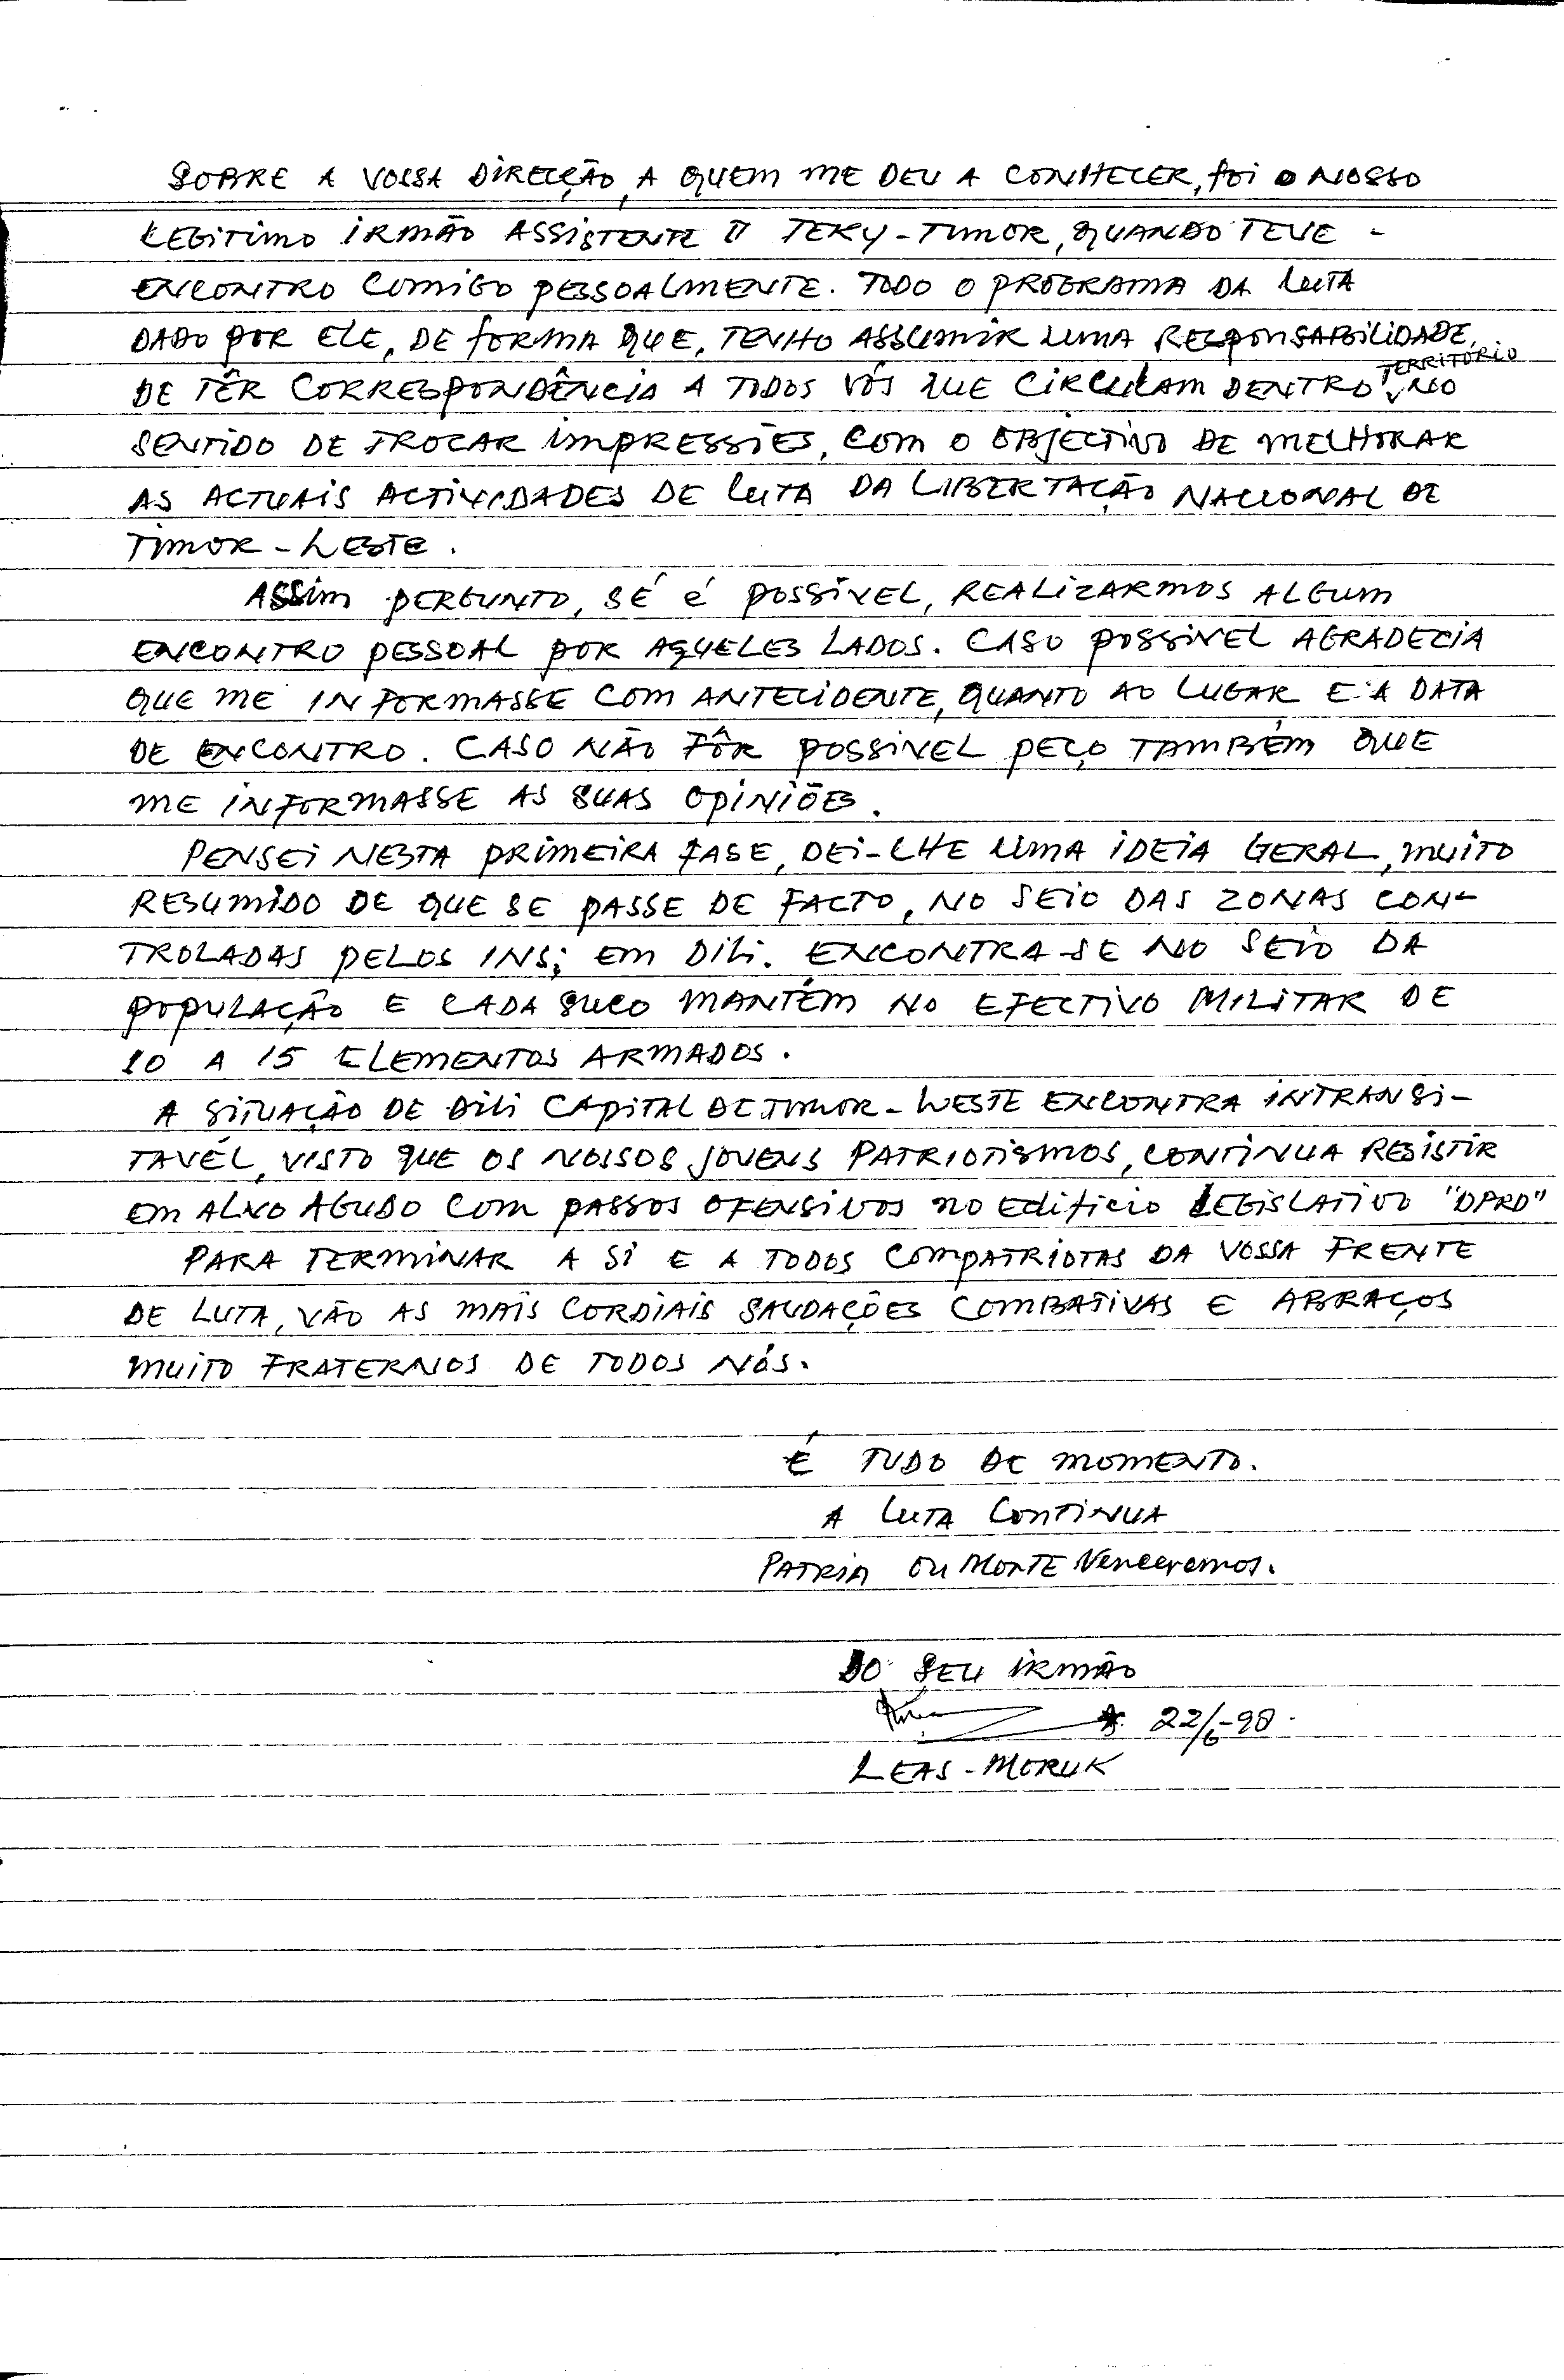 SOBRE A VOSSA DIRECÇÃO, A QUEM ME DEU A CONHECER, foi o NOSSO
LEGITIMO IRMÃO ASSISTENTE TEKY-TIMOR, QUANDO TEVE -
ENCONTRO COMIGO PESSOALMENTE. TODO O PROGRAMA DA LUTA
DADO POR ELE, DE fORMA QUE, TENHO ASSUMIR UMA RESPONSABILIDADE,
TERRITÓRIO
DE TÊR CORRESPONDÊNCIA A TODOS VÓS QUE CIRCULAM DENTRO, NO
SENTIDO DE TROCAR IMPRESSIES, COM O OBJECTIVO DE MELHORAR
AS ACTUAIS ACTIVIDADES DE LUTA DA LIBERTAÇÃO NACIONAL DE
TIMOR-LESTE.
ASSIM PERGUNTO, SÉ É POSSIVEL, REALIZARMOS ALGUM
ENCONTRO PESSOAL POR AQUELES LADOS. CASO POSSIVEL AGRADECIA
QUE ME INFORMASSE COM ANTECIDENTE, QUANTO AO LUGAR E A DATA
DE ENCONTRO. CASO NÃO FÔR POSSIVEL PEÇO TAMBÉM QUE
ME INFORMASSE AS SUAS OPINIÕES.
PENSEI NESTA PRIMEIRA FASE, DEI-LHE UMA IDEIA GERAL, MUITO
RESUMIDO DE QUE SE PASSE DE FACTO, NO SEIO DAS ZONAS CON-
TROLADAS PELOS INS; EM DILI. ENCONTRA-SE NO SEIO DA
POPULAÇÃO E CADA SUCO MANTÉM NO EFECTIVO MILITAR DE
10 A 15 ELEMENTOS ARMADOS.
A SITUAÇÃO DE DILI CAPITAL DE TIMOR-LESTE ENCONTRA INTRANSI-
TAVÉL, VISTO QUE OS NOSSOS JOVENS PATRIOTISMOS, CONTINUA RESISTIR
EM ALVO AGUDO COM PASSOS OFENSIVOS NO EDIFICIO LEGISLATIVO "DPRD"
PARA TERMINAR A SI E A TODOS COMPATRIOTAS DA VOSSA FRENTE
DE LUTA, VÃO AS MAIS CORDIAIS SAUDAÇÕES COMBATIVAS E ABRAÇOS
MUITO FRATERNOS DE TODOS NÓS.
É TUDO DE MOMENTO.
A LUTA CONTINUA
PATRIA OU MORTE Venceremos.
DO SEU IRMÃO
22/6-98
LEAS-MORUK